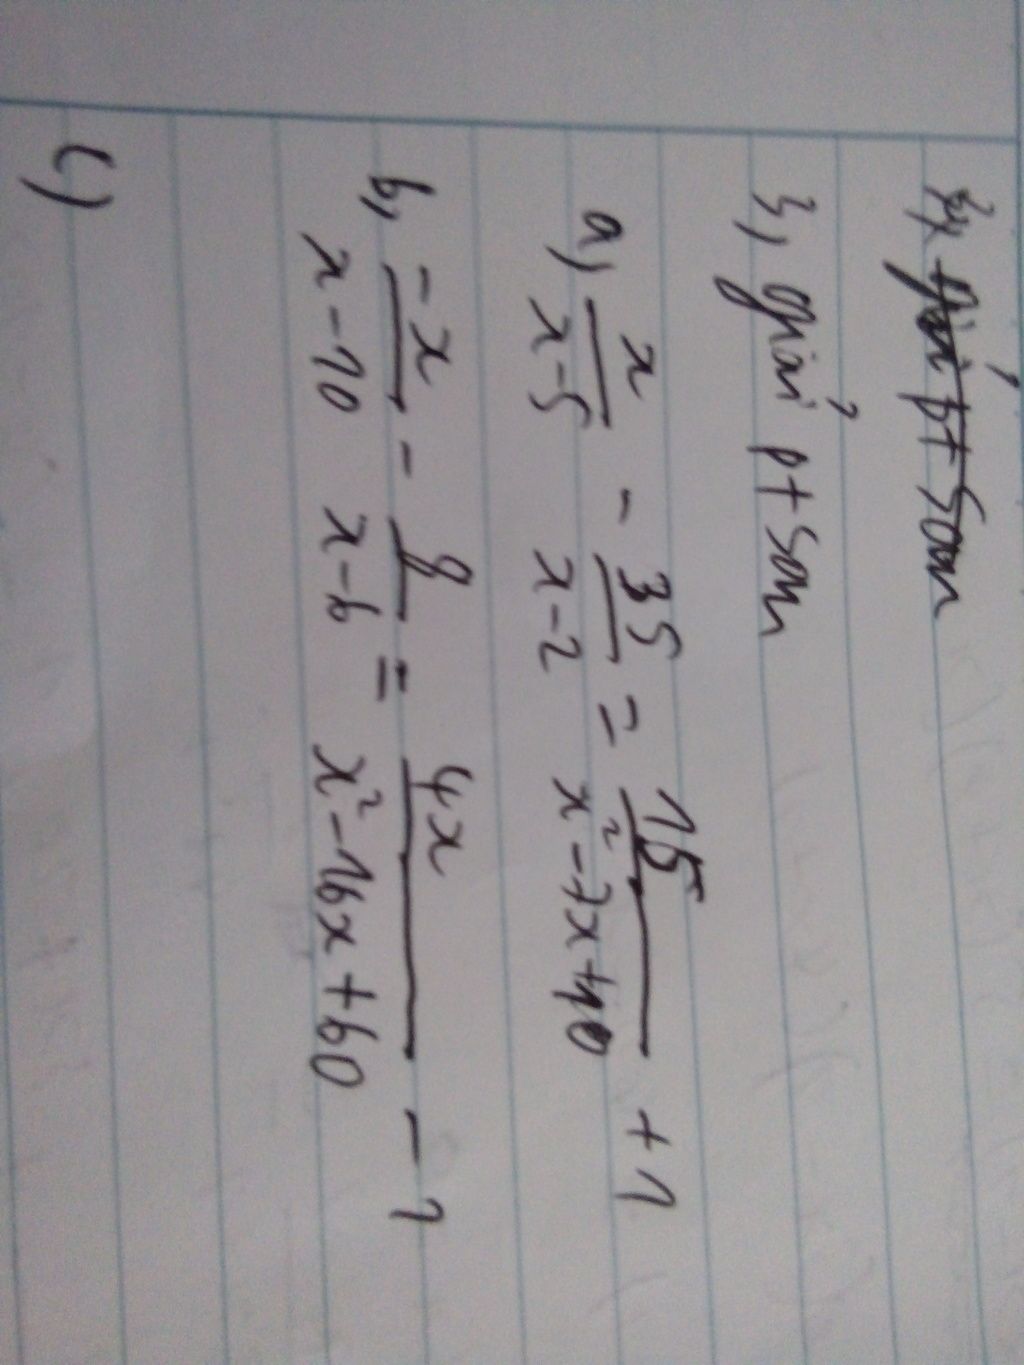 3, giải pt sau
3, giải pt sau
a, x/(x-5) - 35/(x-2) = 15/(x²-7x+10) + 1
b, -x/(x-10) - 8/(x-6) = 4x/(x²-16x+60) - 1
c)